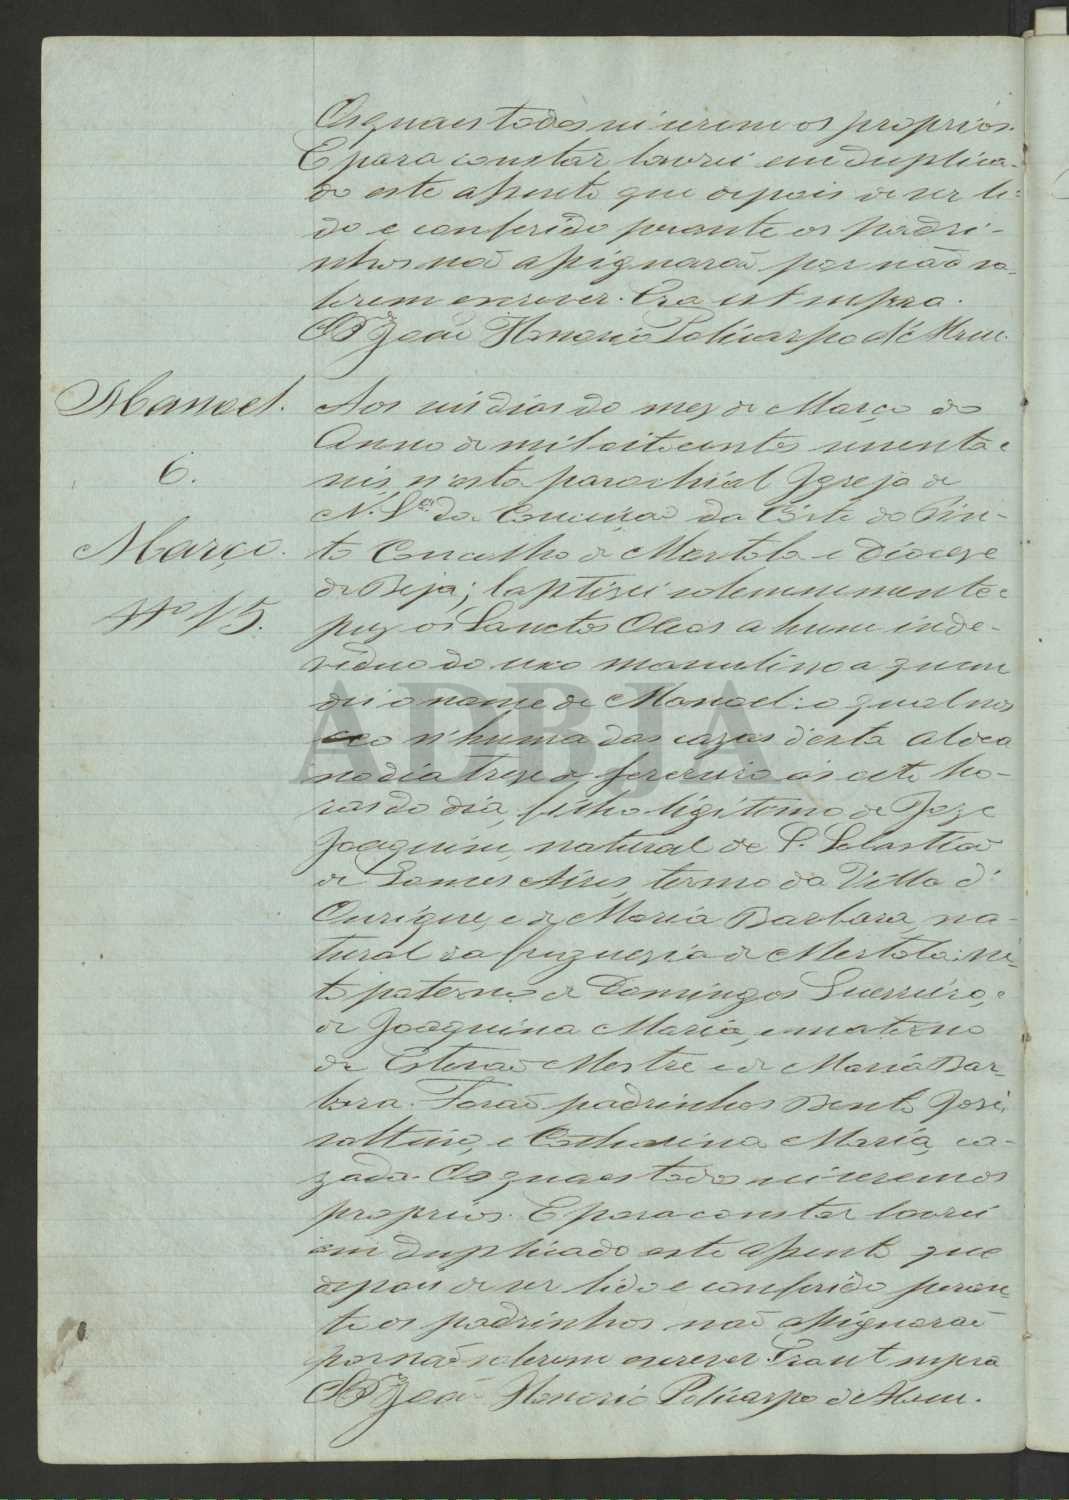 Os quaes todos vi serem os proprios.
E para constar lavrei em duplica-
do este assento que depois de ser li-
do e conferido perante os padri-
nhos naõ assignaraõ por não sa-
berem escrever. Era ut supra.
João Honorio Policarpo d'
Manoel.
6.
Março.
Nº 15.
Aos seis dias do mez de Março do
Anno de mil oitocentos secenta e
seis, n'esta parochial Igreja de
N. Sra. da Conceição da Côrte do Pin-
to Concelho de Mertola e Diocese
de Beja; baptizei solemnemente e
puz os Sanctos Oleos a hum inde-
viduo do sexo masculino a quem
dei o nome de Manoel: o qual nas
ceo n'huma das cazas desta aldea
no dia treze de fevereiro ás sete ho-
ras do dia, filho ligitimo de Joze
Joaquim, natural de S. Sebastiaõ
de Gomes Aires, termo da Villa d'
Ourique, e de Maria Barbara, na-
tural da freguezia de Mertola: ne-
to paterno de Domingos Guerreiro, e
de Joaquina Maria, e materno
de Estevaõ Mestre e de Maria Bar-
bara. Foraõ padrinhos Bento José,
solteiro, e Catharina Maria, ca-
zada. Os quaes todos vi serem os
proprios. E para constar lavrei
em duplicado este assento que
depois de ser lido e conferido peran-
te os padrinhos naõ assignaraõ
por naõ saberem escrever. Era ut supra
João Honorio Policarpo de
ADBJA